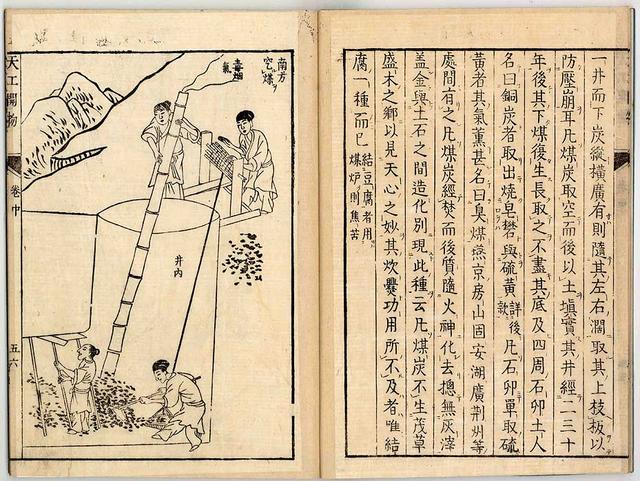 一井而下炭縱橫廣有則隨其左右濶取其上枝板以
防壓崩耳凡煤炭取空而後以土塡實其井經二三十
年後其下煤復生長取之不盡其底及四周石卵土人
名曰銅炭者取出燒皂礬與硫黃詳後款凡石卵單取硫
黃者其氣薰甚名曰臭煤燕京房山固安湖廣荆州等
處間有之凡煤炭經焚而後質隨火神化去摠無灰滓
盖金與土石之間造化別現此種云凡煤炭不生茂草
盛木之鄉以見天心之妙其炊爨功用所不及者唯結
腐一種而已結豆腐者用
煤炉則焦苦
南方
空煤
毒烟
氣
井內
天工開物
卷中
五六